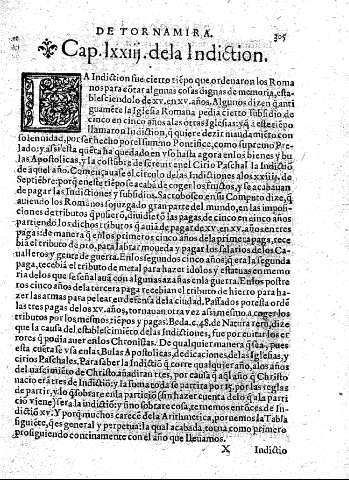 DE TORNAMIRA.
305
Cap. lxxiij. dela Indiction.
LA Indiction fue cierto tiẽpo que ordenaron los Roma
nos para cõtar algunas cosas dignas de memoria, esta-
bleciendolo de xv. en xv. años. Algunos dizen q̃ anti
guamẽte la Iglesia Romana pedia cierto subsidio de
cinco en cinco años alas otras Iglesias: y q̃ a este tiẽpo
llamaron Indictiõ, q̃ quiere dezir mandamiẽto con
solenidad, por ser hecho por el summo Pontifice, como supremo Pre
lado: y assi esta cuẽta ha quedado en vso hasta agora en los bienes y bu
las Apostolicas, y la costũbre de screuir en el Cirio Paschal la Indictiõ
de aquel año. Començaua se el circulo delas Indictiones a los xxiiij. de
Septiẽbre: porq̃ en este tiẽpo se acaba de coger los fructos, y se acabauan
de pagar las Indictiones y subsidios. Sacrobosco en su Computo dize, q̃
auiendo los Romanos sojuzgado gran parte del mundo, en las imposi
ciones de tributos q̃ pusierõ, diuidierõ las pagas de cinco en cinco años
partiendo los dichos tributos q̃ auiã de pagar de xv. en xv. años en tres
pagas: de manera q̃ en los primeros cinco años dela primera paga, rece
bia el tributo de oro, para labrar moneda y pagar los salarios delos Ca
ualleros y gente de guerra. En los segundos cinco años, q̃ era la segunda
paga, recebiã el tributo de metal para hazer idolos y estatuas en memo
ria delos que se señalauã con algunas azañas en la guerra. En los postre
ros cinco años dela tercera paga recebian el tributo de hierro para ha-
zer las armas para pelear en defensa dela ciudad. Passados potesta ordẽ
las tres pagas delos xv. años, tornauan otra vez assi mesmo a coger los
tributos por los mesmos tiẽpos y pagas: Beda. c. 48. de Natura rerũ, dize
que la causa del establescimiẽto delas Indictiones, fue por euitar los er
rores q̃ podia auer en los Chronistas. De qualquier manera q̃ sea, pues
esta cuẽta se vsa en las Bulas Apostolicas, dedicaciones delas Iglesias, y
cirios Paschales. Para saber la Indictiõ q̃ corre qualquier año, a los años
del nascimiẽto de Christo, añadirã tres, por causa q̃ aq̃l año q̃ Christo
nacio erã tres de Indictiõ; y la suma toda se partira por 15. por las reglas
de partir, y lo q̃ sobrare en la particiõ (sin hazer cuenta delo q̃ ala parti
cio viene) sera la indictiõ: y sino sobrare cosa, ternemos entõces de In-
dictiõ xv. Y porq̃ muchos carecẽ dela Arithmetica, por nemos la Tabla
siguiẽte, q̃ es general y perpetua: la qual acabada, torna como primero
prosiguiendo continamente con el año que lleuamos.
X
Indictio